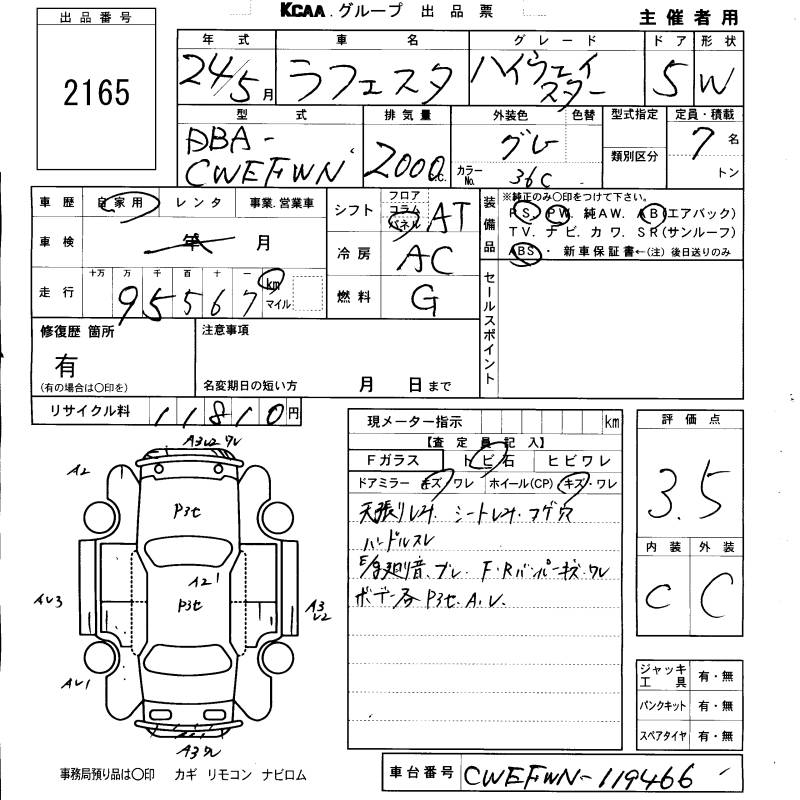 KCAA.グループ 出品票
主催者用
出品番号
2165
年式 車名 グレード ドア 形状
24/5月 ラフェスタ ハイウェイスター 5 W
型式 排気量 外装色 色替 型式指定 定員・積載
DBA-CWEFWN 2000 c.c. グレー カラーNo. 36C 類別区分 7名 トン
車歴 自家用 レンタ 事業.営業車
車検 年 月
走行 十万 万 千 百 十 一
95567 km マイル
シフト フロア コラム パネル AT
冷房 AC
燃料 G
装備品
※純正のみ〇印をつけて下さい。
PS. PW. 純AW. AB(エアバック)
TV. ナビ. カワ. SR(サンルーフ)
ABS・ 新車保証書←(注) 後日送りのみ
セールスポイント
修復歴 箇所
有
(有の場合は〇印を)
注意事項
名変期日の短い方 月 日まで
リサイクル料 11810円
現メーター指示 km
【査定員記入】
Fガラス トビ石 ヒビワレ
ドアミラー キズ ワレ ホイール(CP) キズ・ワレ
天張りレス シートレス コゲ穴
ハンドルスレ
ブレ. F・Rバンパーキズ.ワレ
ボデー各 P3セ. A. U.
評価点
3.5
内装 外装
C C
ジャッキ工具 有・無
パンクキット 有・無
スペアタイヤ 有・無
A3U2 ワレ
A2
P3セ
A21
P3セ
AU3
A3U2
AU1
A3ワレ
事務局預り品は〇印 カギ リモコン ナビロム
車台番号 CWEFWN-119466